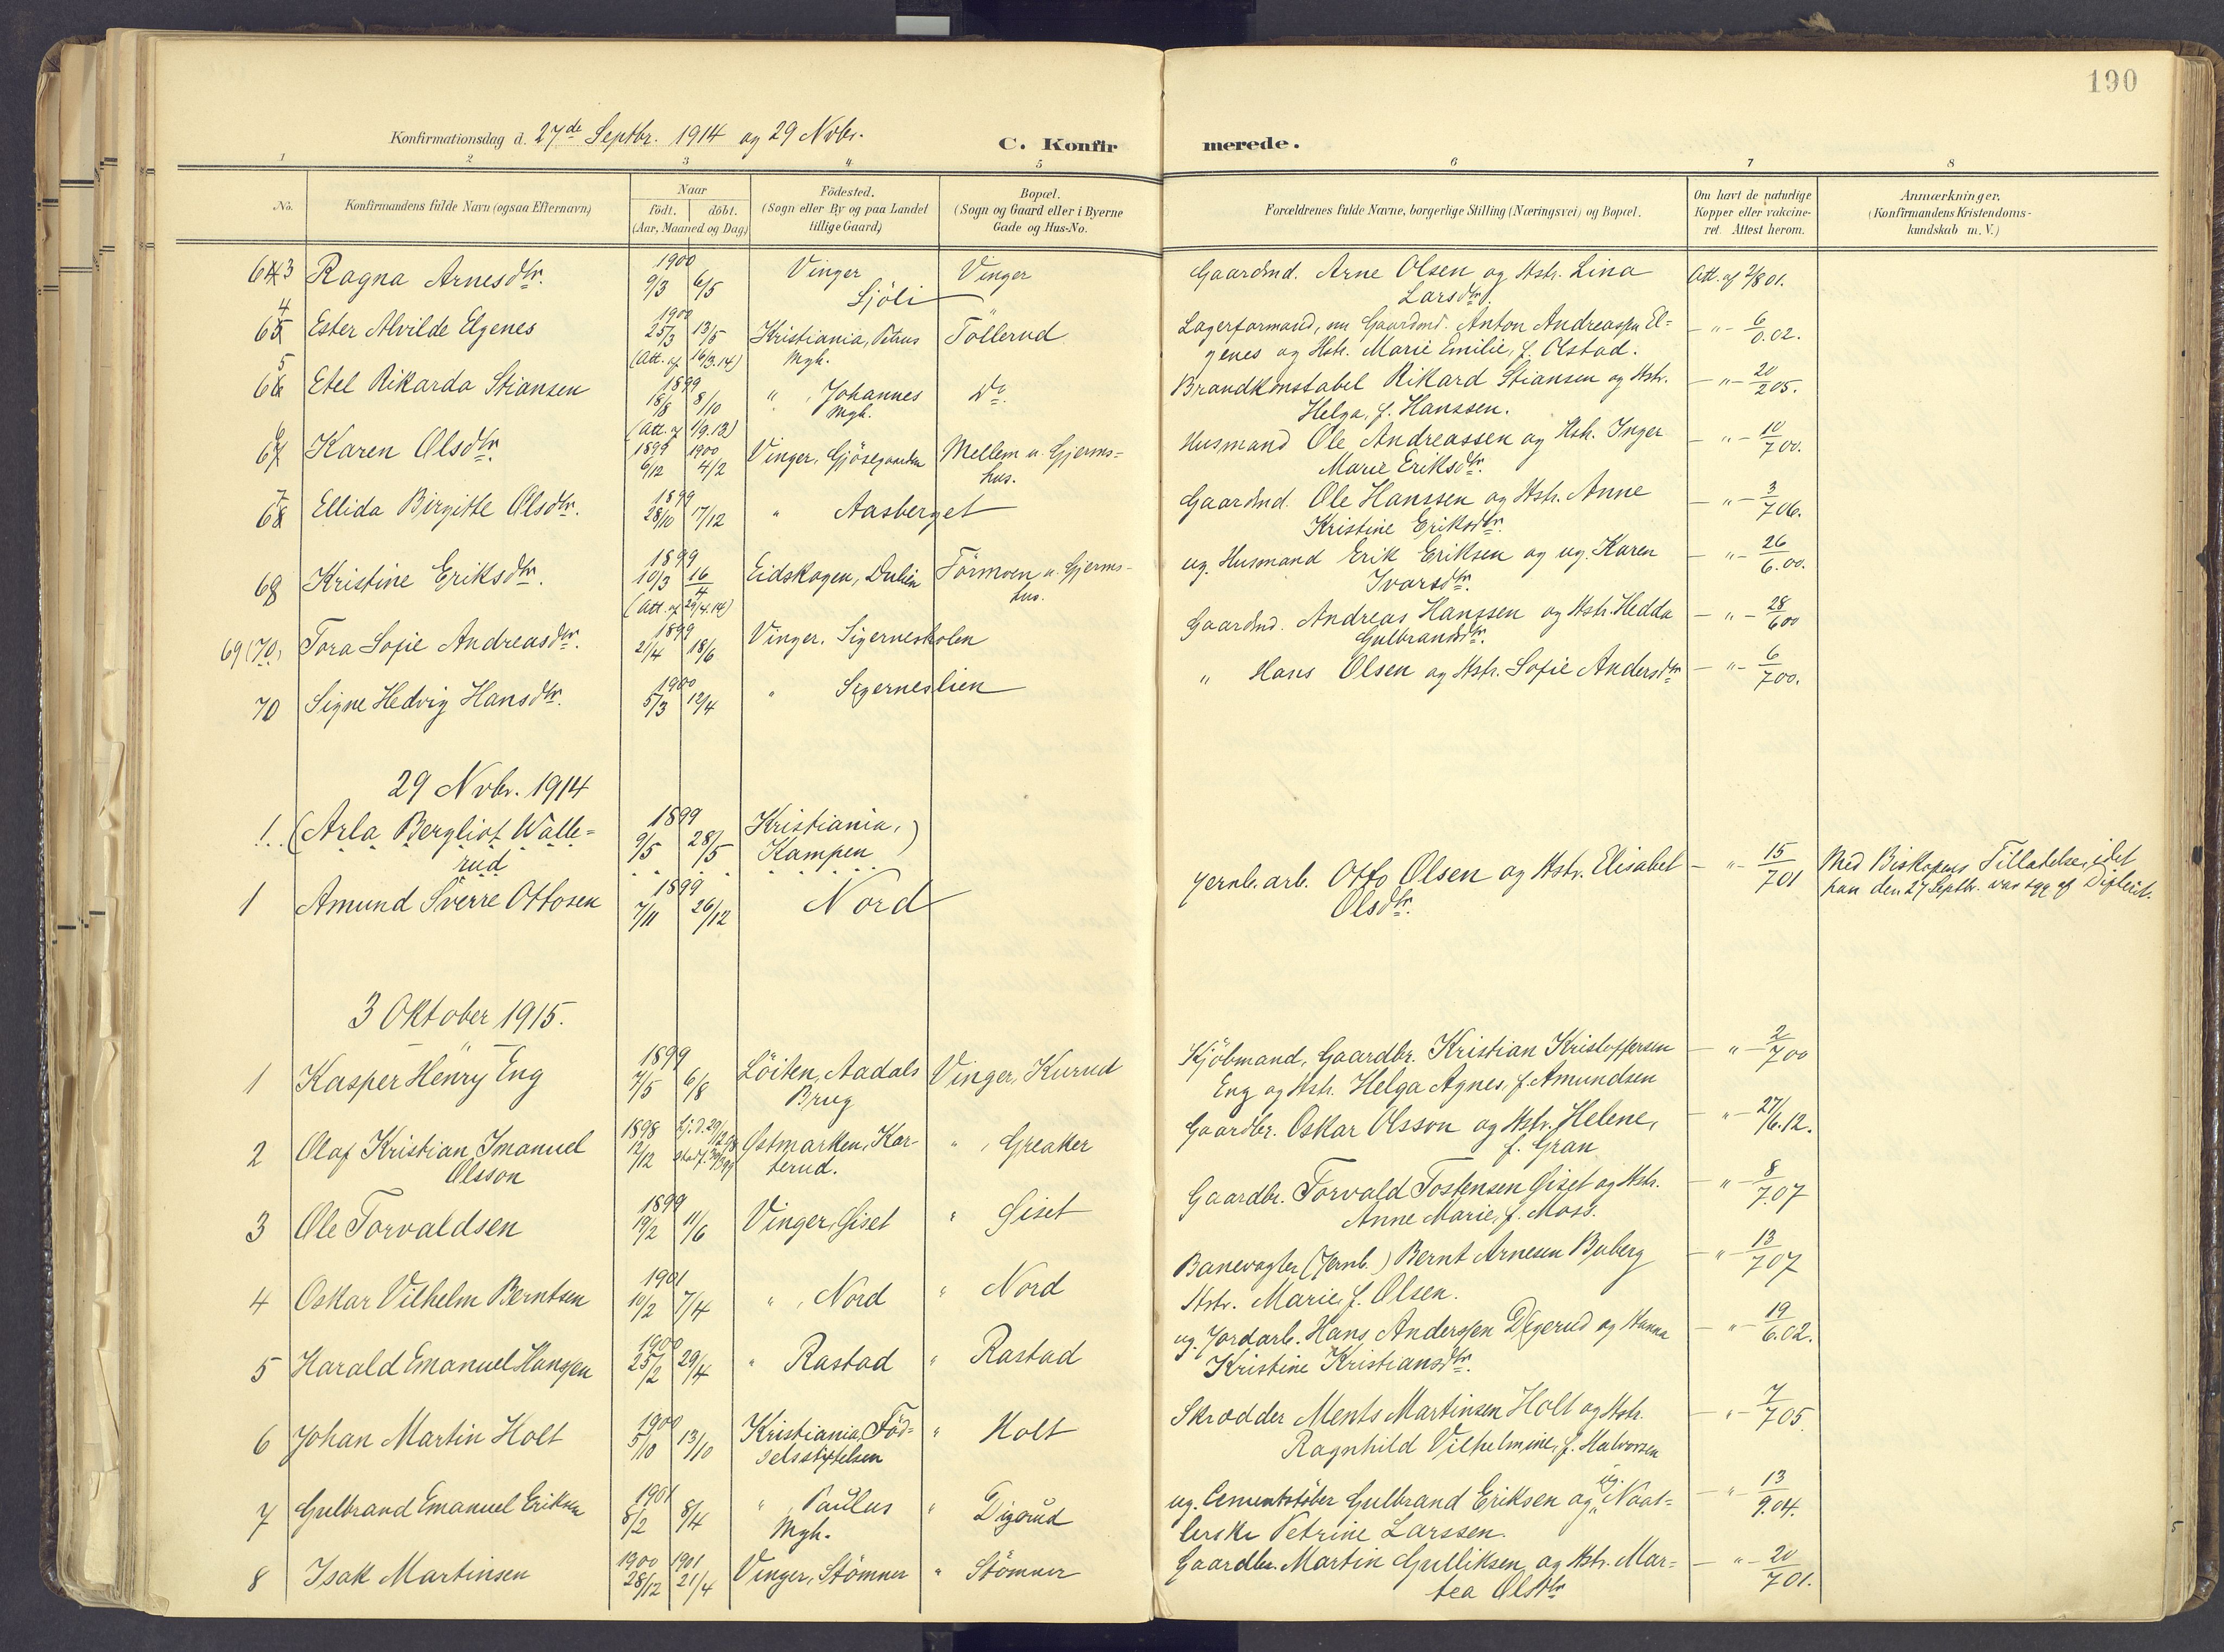 190
Konfirmationsdag d. 27de Septbr. 1914 og 29 Novbr.
C. Konfirmerede.
1 2 3 4 5 6 7 8
No.
Konfirmandens fulde Navn (ogsaa Efternavn)
Naar
födt. döbt.
(Aar, Maaned og Dag)
Födested.
(Sogn eller By og paa Landet
tillige Gaard)
Bopæl.
(Sogn og Gaard eller i Byerne
Gade og Hus-No.
Forældrenes fulde Navne, borgerlige Stilling (Næringsvei) og Bopæl.
Om havt de naturlige
Kopper eller vakcine-
ret. Attest herom.
Anmærkninger.
(Konfirmandens Kristendoms-
kundskab m. V.)
63 Ragna Arnesdtr. 1900 9/3 6/5 Vinger Vinger Gaardmd. Arne Olsen og Hstr. Lina Att. af 2/8 01.
Sjöli Larsdtr.
64 Ester Alvilde Elgenes 1900 25/3 13/5 Kristiania, Petrus Töllerud Lagerformand, nu Gaardmd. Anton Andreassen El- - " - 6/9.02.
(Att. af 16/3.14) Mgh. genes og Hstr. Marie Emilie, f. Olstad.
65 Etel Rikarda Stiansen 1899 18/8 8/10 " , Johannes Do. Brandkonstabel Rikard Stiansen og Hstr. - " - 20/2 05.
(Att. af 1/9.13) Mgh. Helga, f. Hanssen.
66 Karen Olsdtr. 1899 6/12 1900 4/2 Vinger, Gjösegaarden Mellem u. Gjerms- Husmand Ole Andreassen og Hstr. Inger - " - 10/7 00.
hus. Marie Eriksdtr.
67 Ellida Birgitte Olsdtr. 1899 28/10 17/12 " Aasberget Gaardmd. Ole Hanssen og Hstr. Anne - " - 3/7 06.
Kristine Eriksdtr.
68 Kristine Eriksdtr. 1899 10/3 16/4 Eidskogen, Dulien Törmoen u. Gjerms- ug. Husmand Erik Eriksen og ug. Karen - " - 26/6.00.
(Att. af 29/4.14) hus. Ivarsdtr.
69 (70) Tora Sofie Andreasdtr. 1899 21/4 18/6 Vinger, Sigernesholen Gaardmd. Andreas Hanssen og Hstr. Hedda - " - 28/6 00
Gulbrandsdtr.
70 Signe Hedvig Hansdtr. 1900 5/3 12/4 " Sigerneslien " Hans Olsen og Hstr. Sofie Andersdtr - " - 6/7 00.
29 Novbr. 1914
1. (Arla Bergliot Walle- 1899 9/5 28/5 Kristiania,
rud Kampen )
1 Amund Sverre Ottosen 1899 7/11 26/12 Nord Jernb. arb. Otto Olsen og Hstr. Elisabet - " - 15/7 01 Med Biskopens Tilladelse, idet
Olsdtr. han den 27 Septbr. var syg af Difterit.
3 Oktober 1915.
1 Kasper Henry Eng 1899 7/5 6/8 Löiten, Aadals Vinger, Kurud Kjöbmand, Gaardbr. Kristian Kristoffersen - " - 2/7 00
Brug Eng og Hstr. Helga Agnes, f. Amundsen
2 Olaf Kristian Imanuel 1898 12/12 Hj. d. 29/12 98 Östmarken, Kar- " , Greaker Gaardbr. Oskar Olsson og Hstr. Helene, - " - 27/6.12.
Olsson terud. f. Gran
3 Ole Torvaldsen 1899 19/2 11/6 Vinger, Giset " Giset Gaardbr. Torvald Tostensen Giset og Hstr. - " - 8/7.07
Anne Marie, f. Moss.
4 Oskar Vilhelm Berntsen 1901 10/2 7/4 " , Nord " Nord Banevogter (Jernb.) Bernt Arnesen Buberg - " - 13/7 07
Hstr. Marie, f. Olsen.
5 Harald Emanuel Hanssen 1900 25/2 29/4 " Rastad " Rastad ug. Jordarb. Hans Anderssen Digerud og Hanna - " - 19/6.02.
Kristine Kristiansdtr.
6 Johan Martin Holt 1900 5/10 13/10 Kristiania, Föd- " Holt Skrædder Ments Martinsen Holt og Hstr. - " - 7/7 05.
selsstiftelsen Ragnhild Vilhelmine, f. Halvorsen
7 Gulbrand Emanuel Eriksen 1901 8/2 8/4 " , Paulus " Digerud ug. Cementstöber Gulbrand Eriksen og ug. Naat- - " - 13/9.04.
Mgh. lerske Petrine Larssen.
8 Isak Martinsen 1900 28/12 1901 21/4 Vinger, Stömner " Stömner Gaardbr. Martin Gulliksen og Hstr. Mar- - " - 20/7 01.
tea Olsdtr